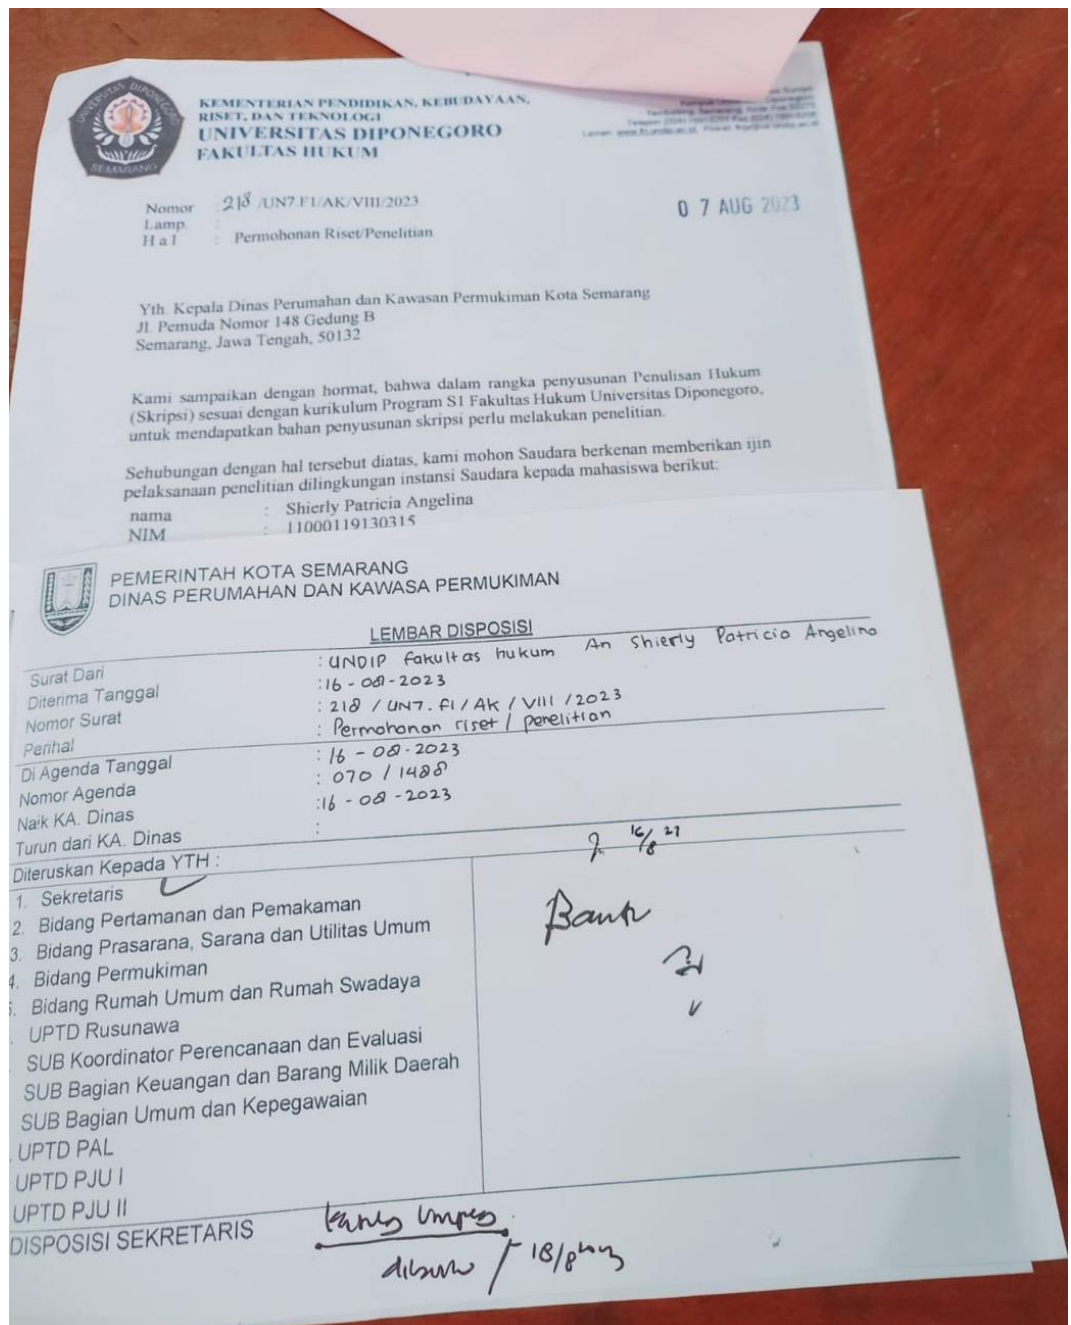 UNIVERSITAS DIPONEGORO
SEMARANG
KEMENTERIAN PENDIDIKAN, KEBUDAYAAN,
RISET, DAN TEKNOLOGI
UNIVERSITAS DIPONEGORO
FAKULTAS HUKUM
Nomor : 218 /UN7.F1/AK/VIII/2023
07 AUG 2023
Lamp. :
Hal : Permohonan Riset/Penelitian
Yth. Kepala Dinas Perumahan dan Kawasan Permukiman Kota Semarang
Jl. Pemuda Nomor 148 Gedung B
Semarang, Jawa Tengah, 50132
Kami sampaikan dengan hormat, bahwa dalam rangka penyusunan Penulisan Hukum
(Skripsi) sesuai dengan kurikulum Program S1 Fakultas Hukum Universitas Diponegoro,
untuk mendapatkan bahan penyusunan skripsi perlu melakukan penelitian.
Sehubungan dengan hal tersebut diatas, kami mohon Saudara berkenan memberikan ijin
pelaksanaan penelitian dilingkungan instansi Saudara kepada mahasiswa berikut:
nama : Shierly Patricia Angelina
NIM : 11000119130315
PEMERINTAH KOTA SEMARANG
DINAS PERUMAHAN DAN KAWASA PERMUKIMAN
LEMBAR DISPOSISI
Surat Dari : UNDIP fakultas hukum An Shierly Patricia Angelina
Diterima Tanggal : 16-08-2023
Nomor Surat : 218 / UN7. F1 / AK / VIII / 2023
Perihal : Permohonan riset / penelitian
Di Agenda Tanggal : 16-08-2023
Nomor Agenda : 070 / 1488
Naik KA. Dinas : 16-08-2023
Turun dari KA. Dinas :
Diteruskan Kepada YTH :
16/8
1. Sekretaris
2. Bidang Pertamanan dan Pemakaman
3. Bidang Prasarana, Sarana dan Utilitas Umum
4. Bidang Permukiman
Bidang Rumah Umum dan Rumah Swadaya
UPTD Rusunawa
SUB Koordinator Perencanaan dan Evaluasi
SUB Bagian Keuangan dan Barang Milik Daerah
SUB Bagian Umum dan Kepegawaian
UPTD PAL
UPTD PJU I
UPTD PJU II
DISPOSISI SEKRETARIS
18/8